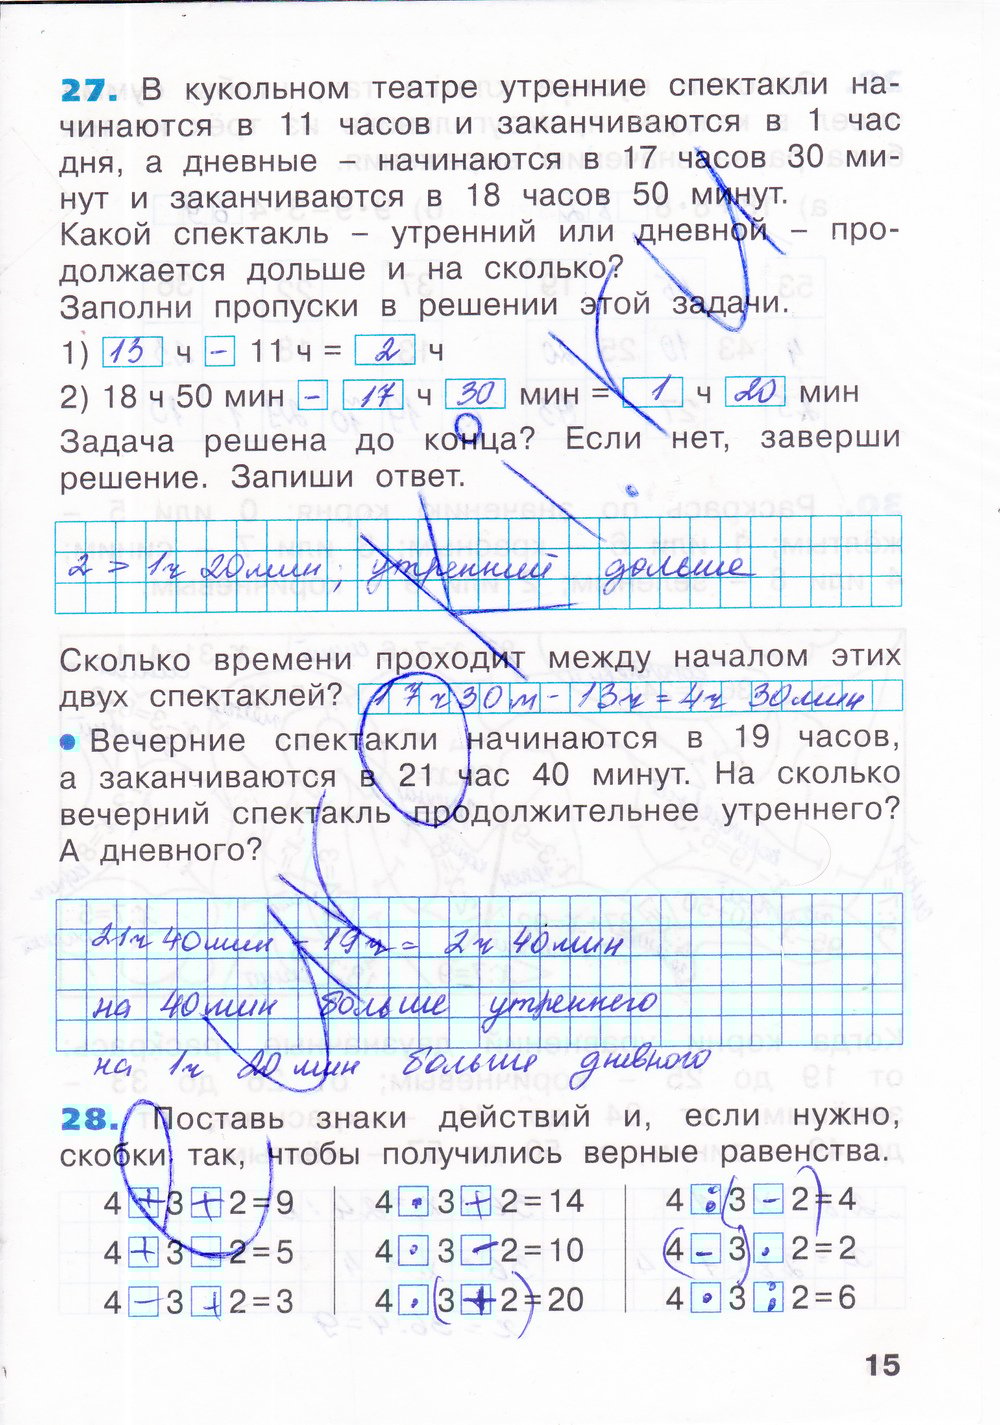 27. В кукольном театре утренние спектакли на-
чинаются в 11 часов и заканчиваются в 1 час
дня, а дневные – начинаются в 17 часов 30 ми-
нут и заканчиваются в 18 часов 50 минут.
Какой спектакль – утренний или дневной – про-
должается дольше и на сколько?
Заполни пропуски в решении этой задачи.
1) 13 ч - 11 ч = 2 ч
2) 18 ч 50 мин - 17 ч 30 мин = 1 ч 20 мин
Задача решена до конца? Если нет, заверши
решение. Запиши ответ.
2 > 1ч 20мин; утренний дольше
Сколько времени проходит между началом этих
двух спектаклей? 17ч 30 м - 13ч = 4ч 30мин
• Вечерние спектакли начинаются в 19 часов,
а заканчиваются в 21 час 40 минут. На сколько
вечерний спектакль продолжительнее утреннего?
А дневного?
21ч 40мин - 19ч = 2ч 40мин
на 40мин больше утреннего
на 1ч 20мин больше дневного
28. Поставь знаки действий и, если нужно,
скобки так, чтобы получились верные равенства.
4 + 3 + 2 = 9 4 · 3 + 2 = 14 4 : (3 - 2) = 4
4 + 3 - 2 = 5 4 · 3 - 2 = 10 (4 - 3) · 2 = 2
4 - 3 + 2 = 3 4 · (3 + 2) = 20 4 · 3 : 2 = 6
15